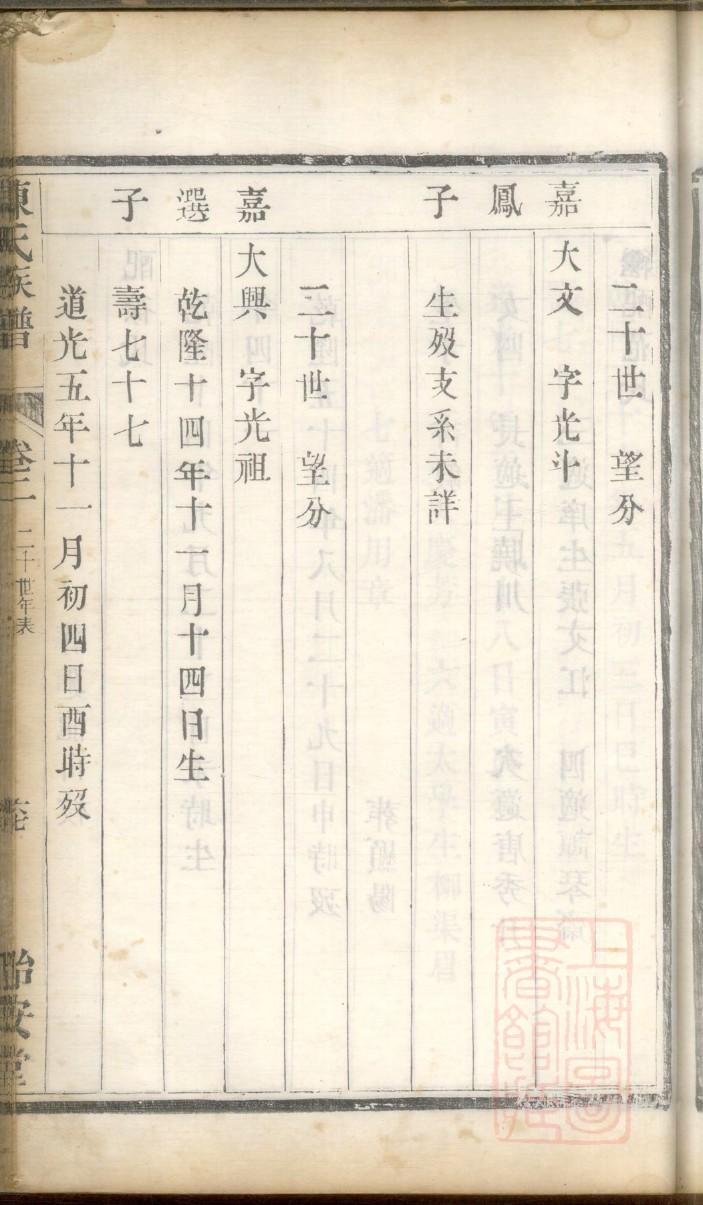 二十世 望分
嘉鳳子
大文 字光斗
生歿支系未詳
二十世 望分
嘉選子
大興 字光祖
乾隆十四年十一月十四日生
壽七十七
道光五年十一月初四日酉時歿
陳氏族譜 卷二 二十世年表 怡安堂
上海圖書館藏